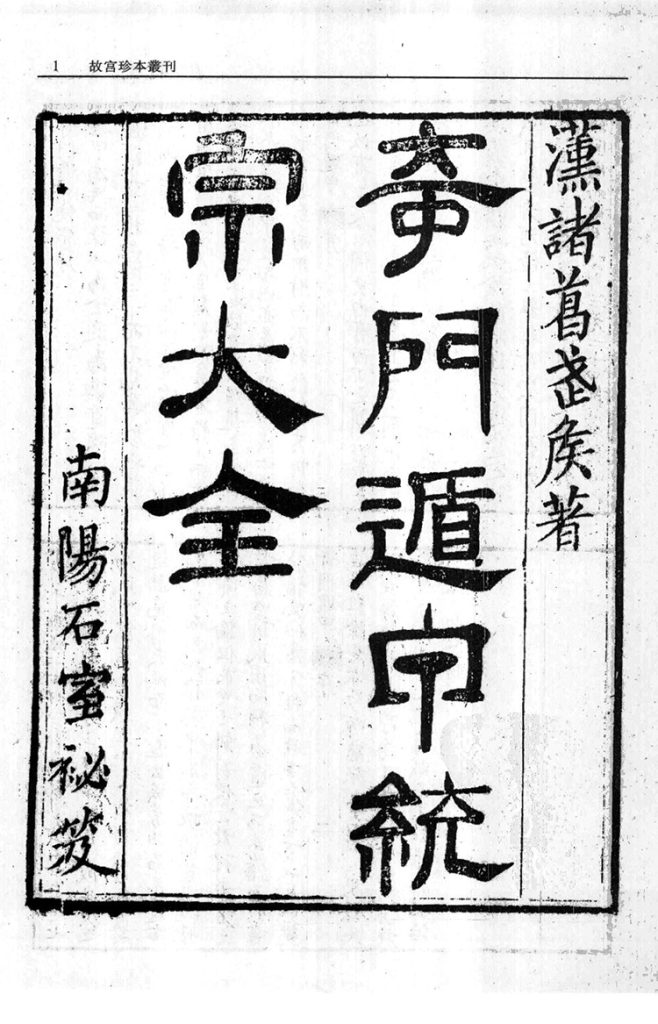 1 故宫珍本叢刊
漢諸葛武矦著
奇門遁甲統
宗大全
南陽石室秘笈